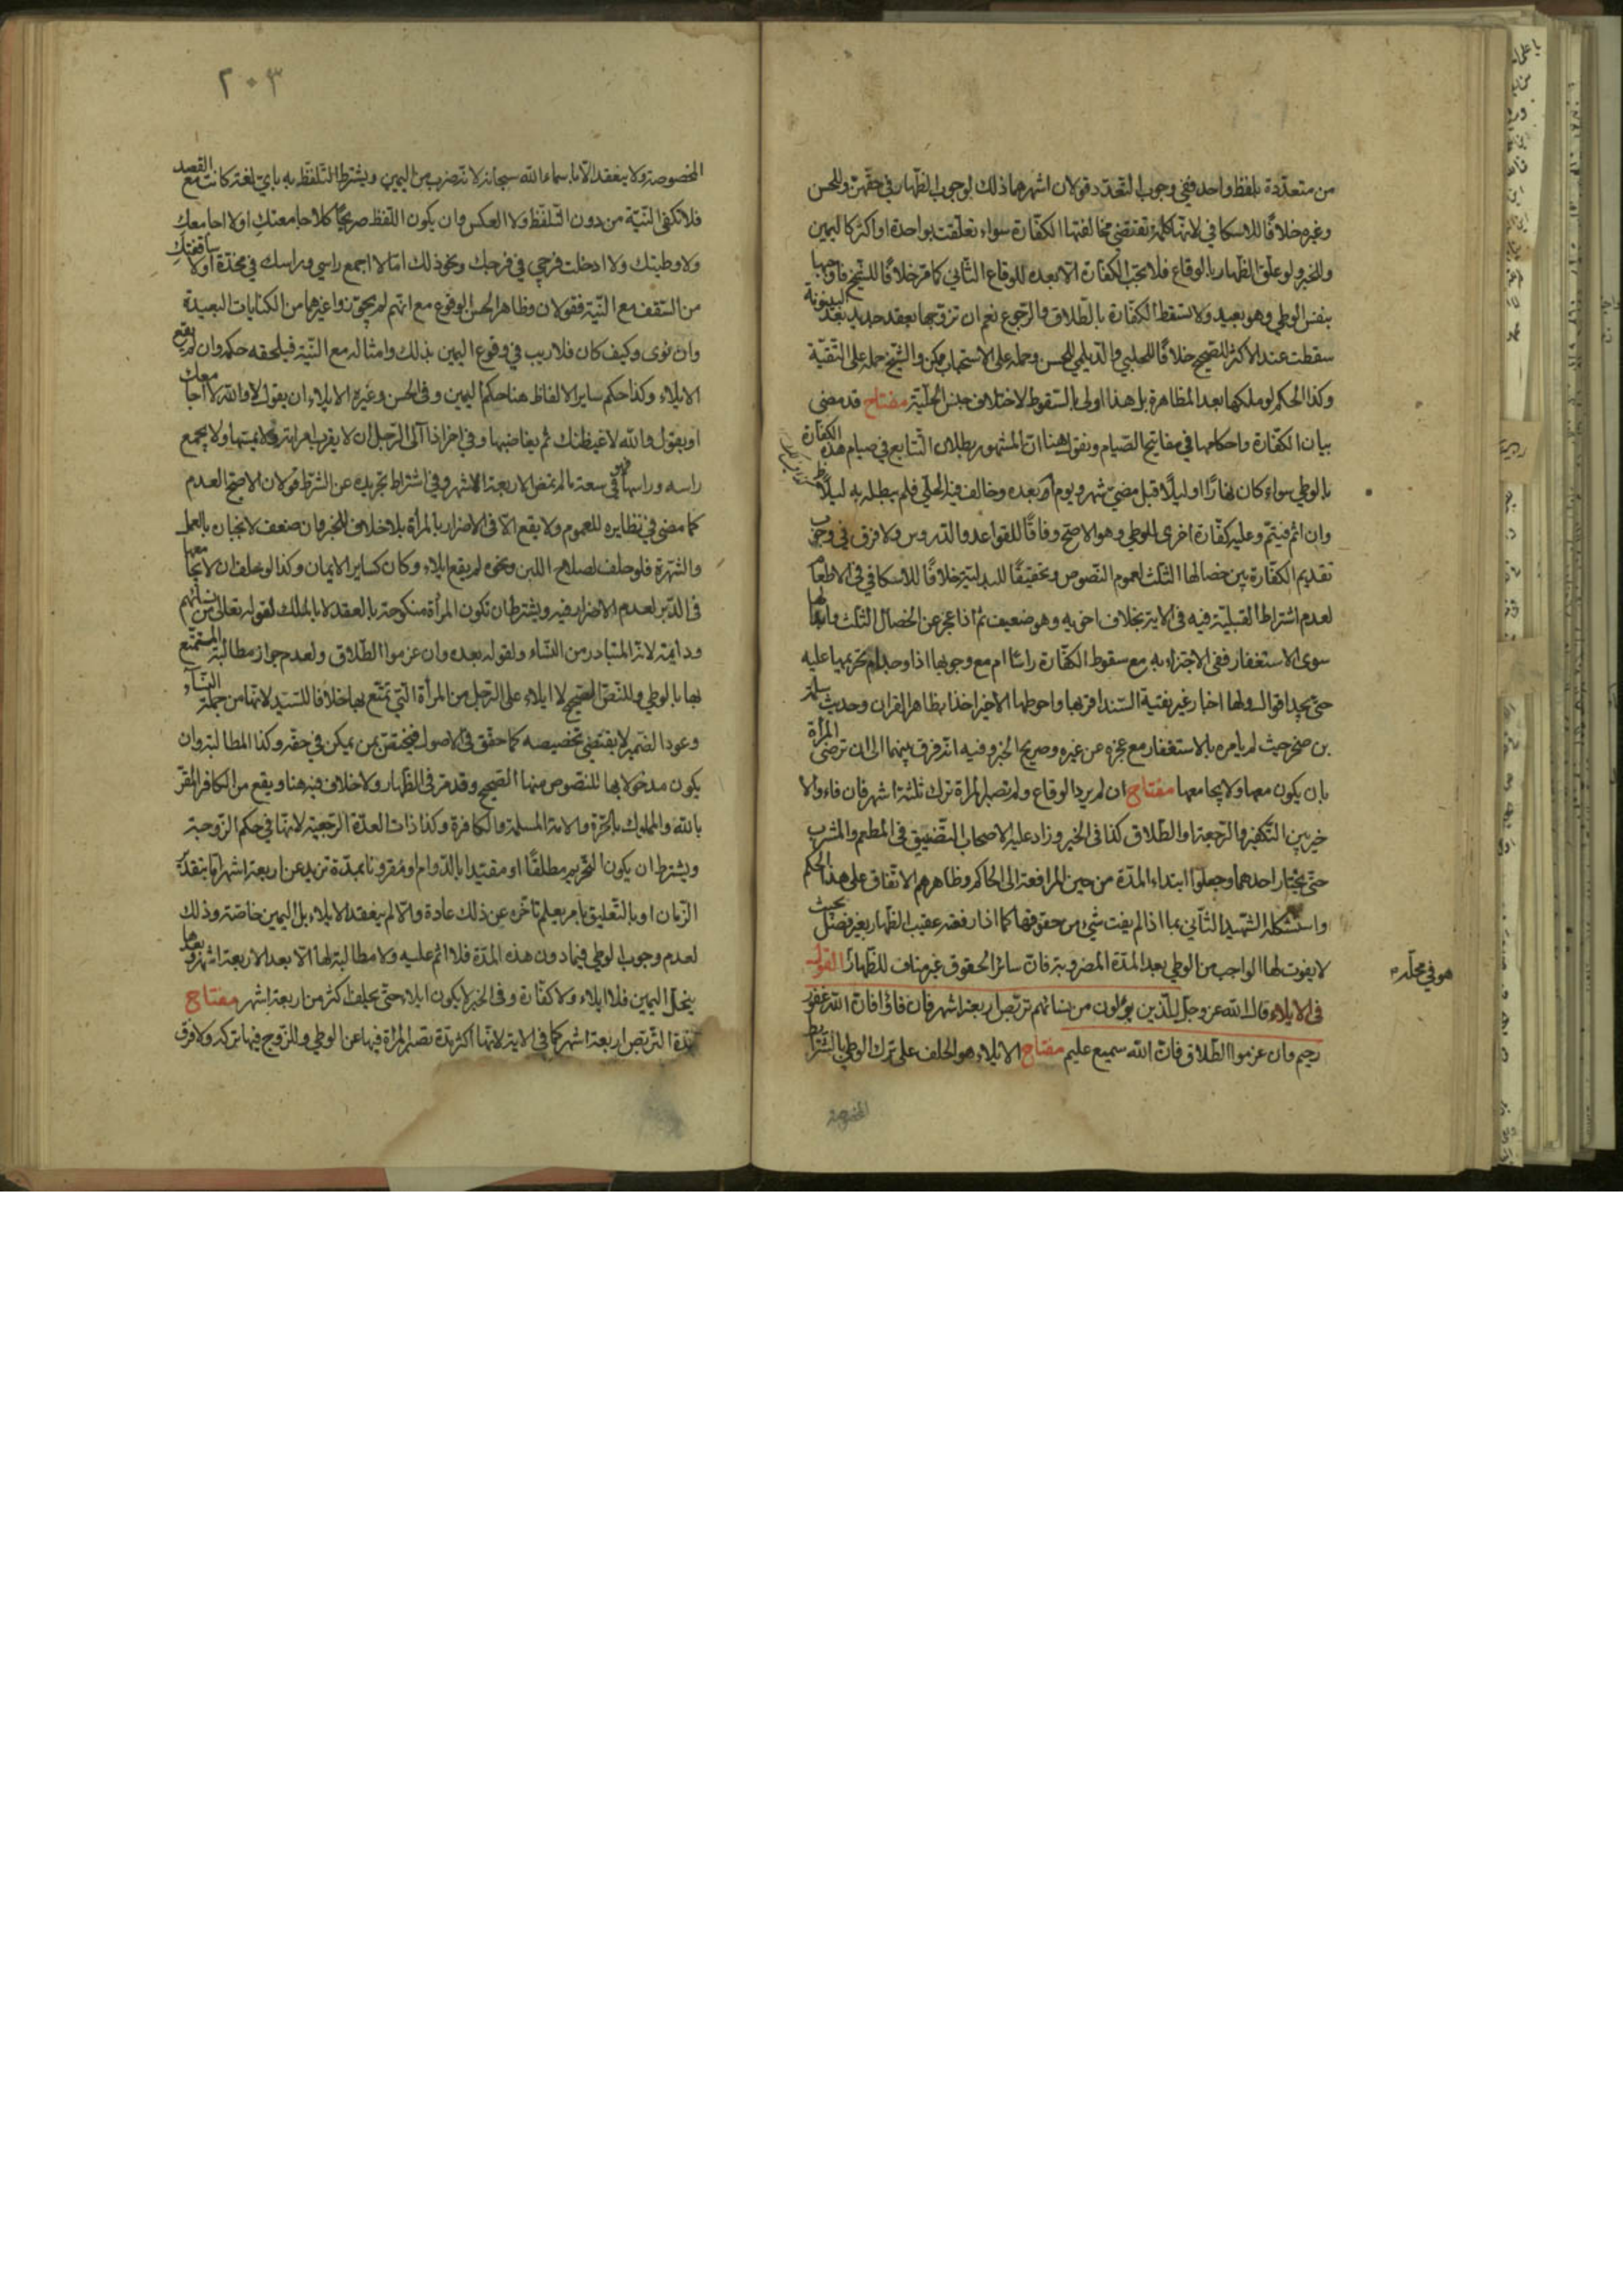 من متعدّدة بلفظ واحد ففي وجوب التعدد قولان اشهرهما ذلك لوجوب الظهار في حقهنّ وللحسن
وغيره خلافًا للاسكافي لانها كلمة تقتضي مخالفتها الكفّارة سواء تعلّقت بواحدة او اكثر كاليمين
وللخبر ولو علّق الظهار بالوقاع فلا تجب الكفّارة الا بعده للوقاع الثاني كما مرّ خلافًا للشيخ فاوجبها
بنفس الوطي وهو بعيد ولا تسقط الكفّارة بالطّلاق والرّجوع نعم ان تزوّجها بعقد جديد بعد البينونة
سقطت عند الاكثر للصّحيح خلافًا للحلبي والديلمي للحسن وحمله على الاستحباب ممكن والشيخ حمله على التقيّة
وكذا الحكم لو ملكها بعد المظاهرة بل هذا اولى بالسّقوط لاختلاف جنس الحلّية مفتاح قد مضى
بيان الكفّارة واحكامها في مفاتيح الصّيام ونقول هنا انّ المشهور بطلان التّتابع في صيام هذه الكفّارة
بالوطي سواء كان نهارًا او ليلًا قبل مضيّ شهر ويوم ام بعده وخالف فيه الحلّي فلم يبطله به ليلًا
وان اثم فيتمّ وعليه كفّارة اخرى للوطي وهو الاصحّ وفاقًا للقواعد والدّروس ولا فرق في وجوب
تقديم الكفّارة بين خصالها الثلث لعموم النّصوص وتحقيقًا للبدليّة خلافًا للاسكافي في الاطعام
لعدم اشتراط القبليّة فيه في الاية بخلاف اخويه وهو ضعيف ثم اذا عجز عن الخصال الثلث وابدالها
سوى الاستغفار ففي الاجتزاء به مع سقوط الكفّارة راسًا ام مع وجوبها اذا وجد ام تحريمها عليه
حتى يجد اقوال ولها اخبار غير نقيّة السّند اقربها واحوطها الاخير اخذا بظاهر القران وحديث سلمة
بن صخر حيث لم يامره بالاستغفار مع عجزه عن غيره وصريح الخبر وفيه انه فرق بينهما الى ان ترضى المرأة
بان يكون معها ولا يجامعها مفتاح ان لم يرد الوقاع ولم تصبر المرأة ترك ثلثة اشهر فان فاء والا
خيّر بين التّكفير والرّجعة او الطّلاق كذا في الخبر وزاد عليه الاصحاب التّضييق في المطعم والمشرب
حتى يختار احدهما وجعلوا ابتداء المدّة من حين المرافعة الى الحاكم وظاهرهم الاتّفاق على هذا الحكم
واستشكله الشّهيد الثّاني بما اذا لم يفت شيء من حقوقها كما اذا رفعته عقيب الظهار بغير فصل بحيث
لا يفوت لها الواجب من الوطي بعد المدّة المضروبة فانّ سائر الحقوق غير مناف للظهار القول
هو في محلّه
في الايلاء قال الله عز وجل للّذين يؤلون من نسائهم تربّص اربعة اشهر فان فاؤا فان الله غفور
رحيم وان عزموا الطّلاق فانّ الله سميع عليم مفتاح الايلاء هو الحلف على ترك الوطي بالشرائط
المخصوصة
٢٠٣
المخصوصة ولا ينعقد الّا باسماء الله سبحانه لانه ضرب من اليمين ويشترط التّلفّظ به بايّ لغة كانت مع القصد
فلا تكفي النّيّة من دون التّلفّظ ولا العكس وان يكون اللّفظ صريحًا كلا جامعتك او لا اجامعك
ولا وطيتك ولا ادخلت فرجي في فرجك ونحو ذلك امّا لا اجمع راسي وراسك في مخدّة او لا ساقفتك
من السّقف مع النّيّة فقولان وظاهر الحسن الوقوع مع انّهم لم يجوّزوا غيرهما من الكنايات البعيدة
وان نوى وكيف كان فلا ريب في وقوع اليمين بذلك وامثاله مع النّيّة فيلحقه حكمه وان لم يقع
الايلاء وكذا حكم ساير الالفاظ هنا حكم اليمين وفي الحسن وغيره الايلاء ان يقول لا والله لا اجامعك
او يقول والله لاغيظنّك ثم يغاضبها وفي اخر اذا آلى الرّجل ان لا يقرب امراته ولا يمسّها ولا يجمع
راسه وراسها فهو في سعة ما لم تمض الاربعة الاشهر وفي اشتراط تجريده عن الشّرط قولان الاصحّ العدم
كما مضى في نظايره للعموم ولا يقع الّا في الاضرار بالمرأة بلا خلاف للخبر وان ضعف لانجباره بالعمل
والشّهرة فلو حلف لصلاح اللبن ونحوه لم يقع ايلاء وكان كساير الايمان وكذا لو حلف ان لا يجامعها
في الدّبر لعدم الاضرار فيه ويشترط ان تكون المرأة منكوحة بالعقد لا بالملك لقوله تعالى من نسائهم
ودائمة لانّه المتبادر من النّساء ولقوله بعده وان عزموا الطّلاق ولعدم جواز مطالبة المستمتع
بها بالوطي وللنّصّ الصّحيح لا ايلاء على الرّجل من المرأة الّتي تمتّع بها خلافًا للسّيّد لانّها من جملة النّساء
وعود الضّمير لا يقتضي تخصيصه كما حقّق في الاصول فيختصّ بمن يمكن في حقّه وكذا المطالبة وان
يكون مدخولا بها للنّصوص منها الصّحيح وقد مرّ في الظّهار ولا خلاف فيه هنا ويقع من الكافر المقرّ
بالله والمملوك بالحرّة والامة المسلمة والكافرة وكذا ذات العدّة الرّجعيّة لانّها في حكم الزّوجة
ويشترط ان يكون التّحريم مطلقًا او مقيّدا بالدّوام او مقرونا بمدّة تزيد عن اربعة اشهر امّا بتقدير
الزّمان او بالتّعليق بامر يعلم تاخّره عن ذلك عادة والّا لم ينعقد الايلاء بل اليمين خاصّة وذلك
لعدم وجوب الوطي فيما دون هذه المدّة فلا اثم عليه ولا مطالبة لها الّا بعد الاربعة اشهر وبعدها
ينحلّ اليمين فلا ايلاء ولا كفّارة وفي الخبر لا يكون ايلاء حتّى يحلف اكثر من اربعة اشهر مفتاح
مدّة التّربّص اربعة اشهر كما في الاية لانّها اكثر مدّة تصبر المرأة فيها عن الوطي وللزّوج فيها تركه ولا فرق